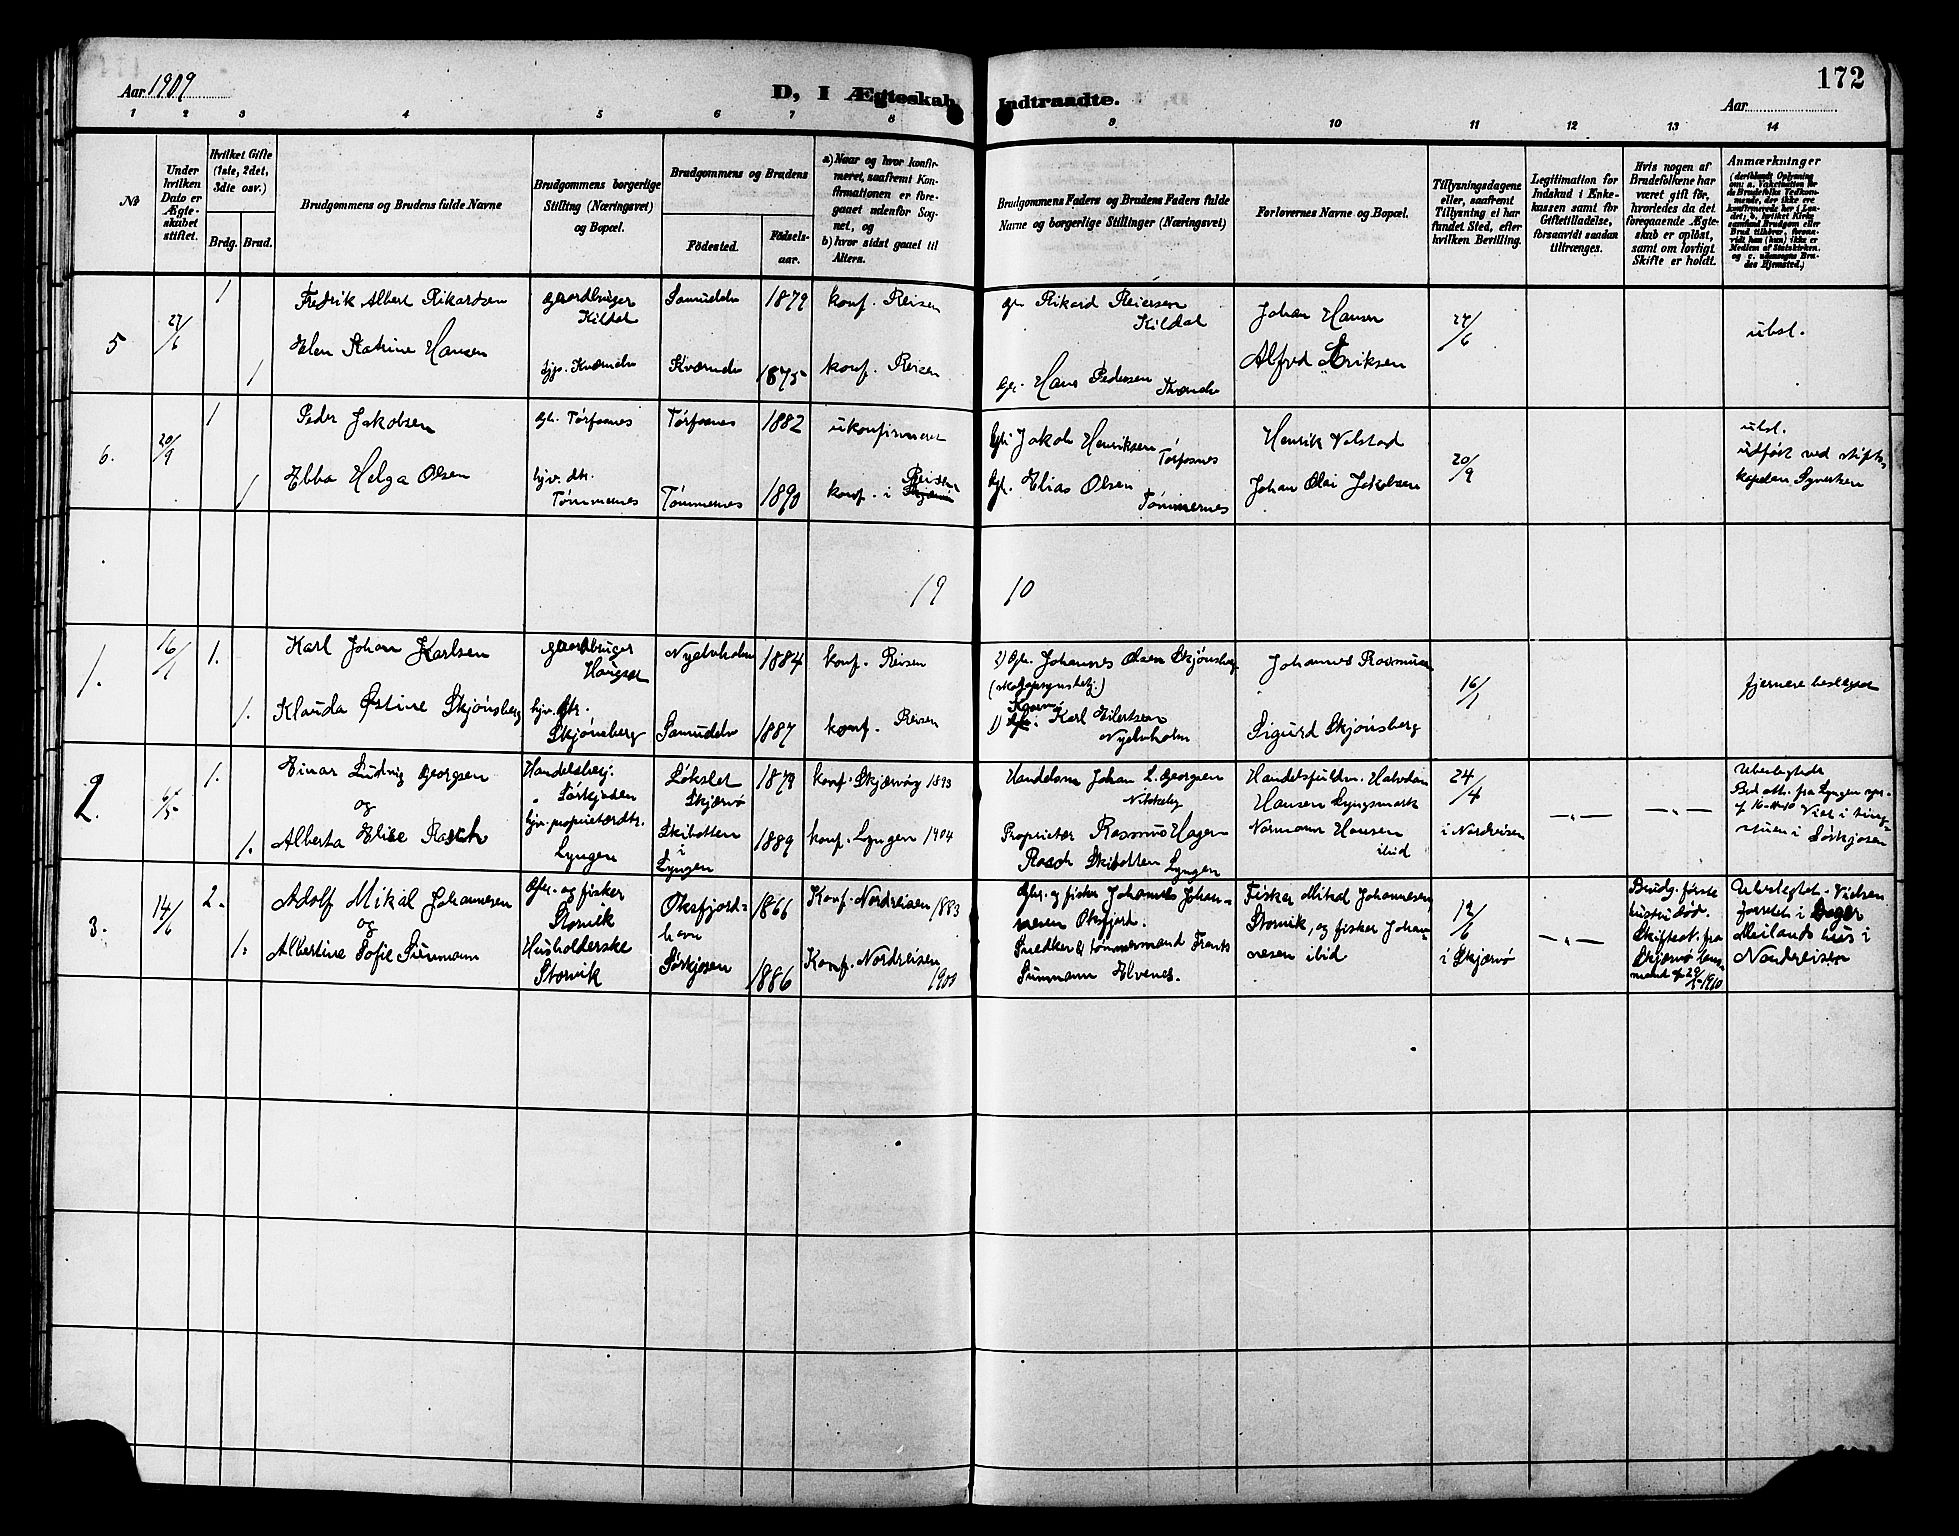 172
Aar 1909
D, I Ægteskab Indtraadte.
Aar
1 2 3 4 5 6 7 8 9 10 11 12 13 14
No
Under hvilken Dato er Ægteskabet stiftet.
Hvilket Gifte (1ste, 2det, 3die osv.)
Brdg. Brud.
Brudgommens og Brudens fulde Navne
Brudgommens borgerlige Stilling (Næringsvei) og Bopæl.
Brudgommens og Brudens
Fødested.
Fødselsaar.
a) Naar og hvor konfirmeret, saafremt Konfirmationen er foregaaet udenfor Sognet, og
b) hvor sidst gaaet til Alters.
Brudgommens Faders og Brudens Faders fulde Navne og borgerlige Stillinger (Næringsvei)
Forlovernes Navne og Bopæl.
Tillysningsdagene eller, saafremt Tillysning ei har fundet Sted, efter hvilken Bevilling.
Legitimation for Indskud i Enkekassen samt for Giftetilladelse, forsaavidt saadan tiltrænges.
Hvis nogen af Brudefolkene har været gift før, hvorledes da det foregaaende Ægteskab er opløst, samt om lovligt Skifte er holdt.
Anmærkninger
5
27/6
1
Fredrik Albert Rikardsen
gaardbruger Kildal
Samuelelv
1879
konf. Reisen
Gbr. Rikard Reiersen Kildal
Johan Hansen
27/6
ubsl.
1
Elen Katrine Hansen
Kvænelv
1875
konf. Reisen
Gbr. Hans Pedersen
Alfred Eriksen
6.
20/9
1
Peder Jakobsen
gbr. Tørfosnes
Tørfosnes
1882
ukonfirmeret
Gbr. Jakob Henriksen Tørfosnes
Henrik Volstad
20/9
ubsl.
udført ved stiftskapelan Syvertsen
1
Ebba Helga Olsen
hjv. dtr. Tømmernes
Tømmernes
1890
konf. i Reisen
Gbr. Elias Olsen Tømmernes
Johan Olai Jakobsen
1910
1.
16/1
1.
Karl Johan Karlsen
gaardbruger Hougset
Nyelvholm
1884
konf. Reisen
2) Gbr. Johannes Olsen Skjønsberg
Johannes Rasmusen
16/1
fjernere beslægtet
1.
Klauda Østine Skjønsberg
hjv. dtr. Skjønsberg
Samuelelv
1887
konf. Reisen
1) Karl Eilertsen Nyelvholm
Sigurd Skjønsberg
2.
1.
Einar Ludvig Georgsen
og
Handelsbetj. Sørkjosen
Løkslet Skjærvø
1879
konf. Skjærvøy 1893
Handelsm. Johan L. Georgsen
Handelsfuldm. Halvdan Hansen Lyngsmark
24/4
i Nordreisen
— „ —
— „ —
Ubeslægtede
1.
Alberta Elise Rasch
hjv. proprietærdtr. Lyngen
Skibotten i Lyngen
1889
konf. Lyngen 1904
Proprietær Rasmus Hagen Rasch Skibotten Lyngen
Normann Hansen ibid
3.
14/6
2.
Adolf Mikal Johannesen
og
Gbr. og fisker Storvik
Oksfjordhavn
1866
Konf. Nordreisen 1883
Gbr. og fisker Johannes Johannesen Oksfjord.
Fisker Mikal Johannesen, Storvik, og fisker Johannesen ibid
12/6
i Skjærvø
— „ —
Brudg. første hustru død.
Skifteat. fra Skjærvø
Ubeslægtet. Vielsen forrettet i Meilands hus i Nordreisen
1.
Albertine Sofie Sunmann
Husholderske Storvik
Sørkjosen
1886
Konf. Nordreisen
Snedker & tømmermand Frants Sunmann Elvenes.